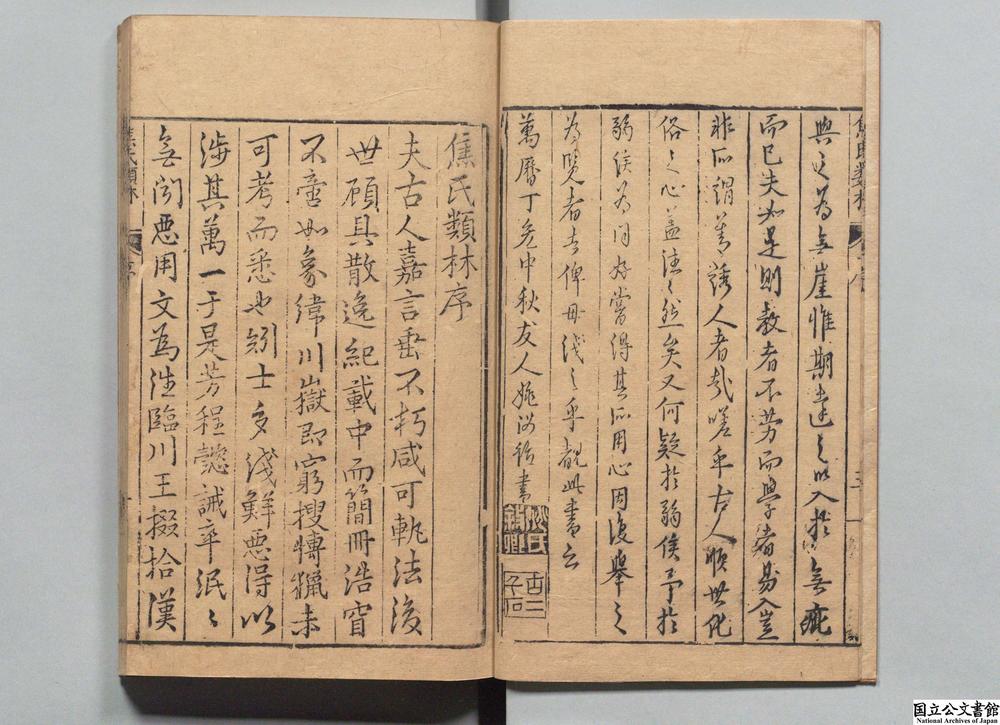 與之為無崖惟期達之以入於無疵
而已夫如是則教者不勞而學者易入豈
非所謂善誘人者哉嗟乎古人順世化
俗之心蓋洼洼然矣又何疑於弱侯予於
弱侯為同好嘗得其所用心因復舉之
為覽者告俾毋淺之乎觀此書云
萬曆丁亥中秋友人姚汝紹書
姚氏
焦氏類林序
夫古人嘉言垂不朽咸可執法後
世顧具散逸紀載中而簡冊浩窅
不啻如象緯川嶽即窮搜博獵未
可考而悉也矧士多淺鮮惡得以
涉其萬一于是芳程懿誡率泯泯
無聞惡用文為往臨川王掇拾漢
焦氏類林
序
国立公文書館
National Archives of Japan